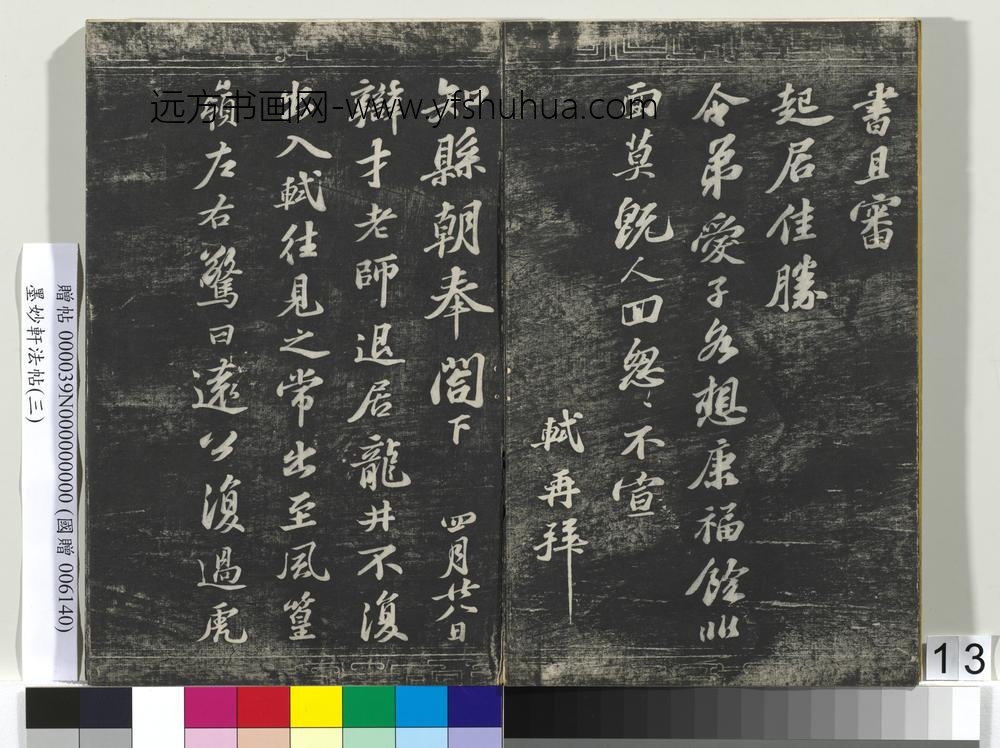 書且審
起居佳勝
令弟愛子各想康福餘非
面莫既人回忽〻不宣
軾再拜
知縣朝奉閤下 四月廿八日
辯才老師退居龍井不復
出入軾往見之常出至風篁
嶺左右驚曰遠公復過虎
远方书画网-www.yfshuhua.com
贈帖 000039N000000000 (國贈 006140)
墨妙軒法帖(三)
13